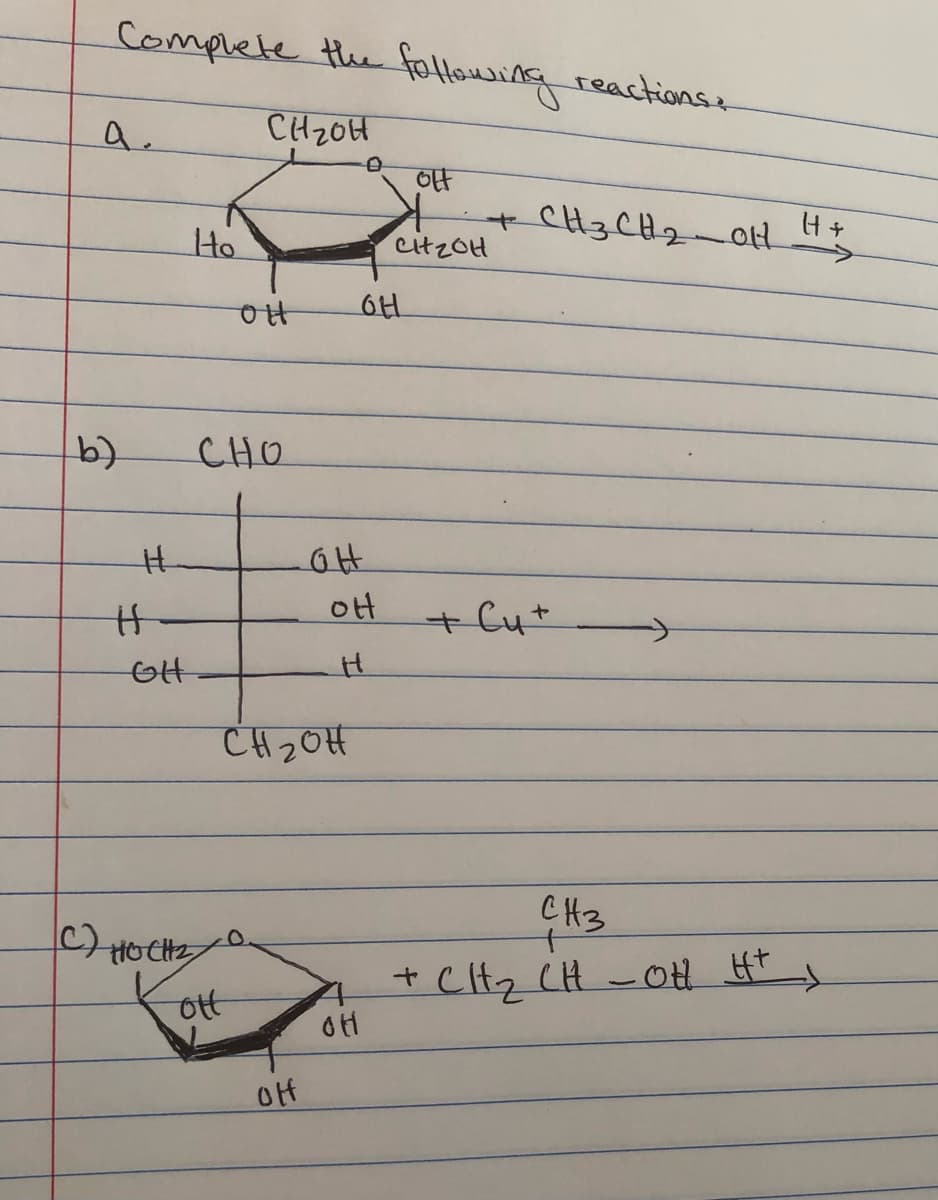 Complete the following reactions:
a.
CH2OH
O
OH
+ CH3CH2-OH H+ →
HO
CH2OH
OH OH
b) CHO
H OH
H OH + Cu+ →
OH H
CH2OH
CH3
c) HOCH2 O
+ CH2 CH-OH H+ →
OH
OH
OH